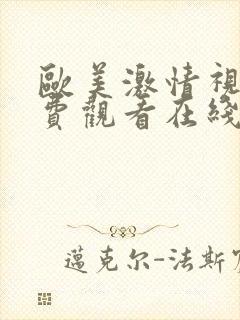 歐美激情視
費觀看在綫
邁克尔-法斯賓